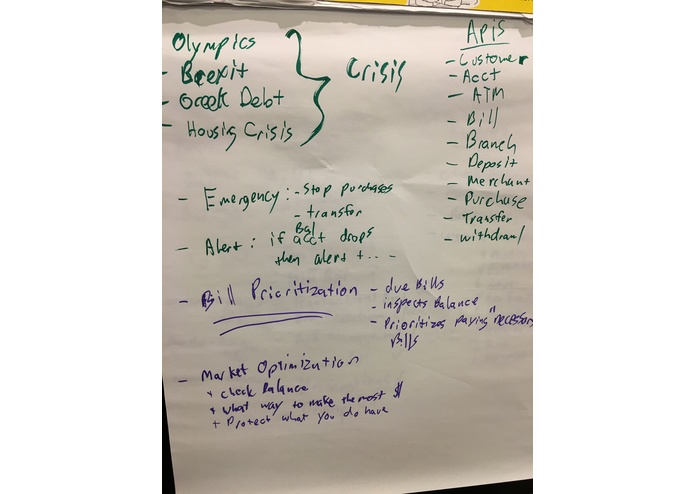 Olympics
- Brexit
- Greek Debt
- Housing Crisis
Crisis
APIs
- Customer
- Acct
- ATM
- Bill
- Branch
- Deposit
- Merchant
- Purchase
- Transfer
- withdrawl
- Emergency: - Stop purchases
- transfer
- Alert: if Bal acct drops
then alert + . . . -
- Bill Prioritization - due Bills
- inspects Balance
- Prioritizes paying "necessary
Bills
- Market Optimization
+ check Balance
+ what way to make the most $
+ Protect what you do have